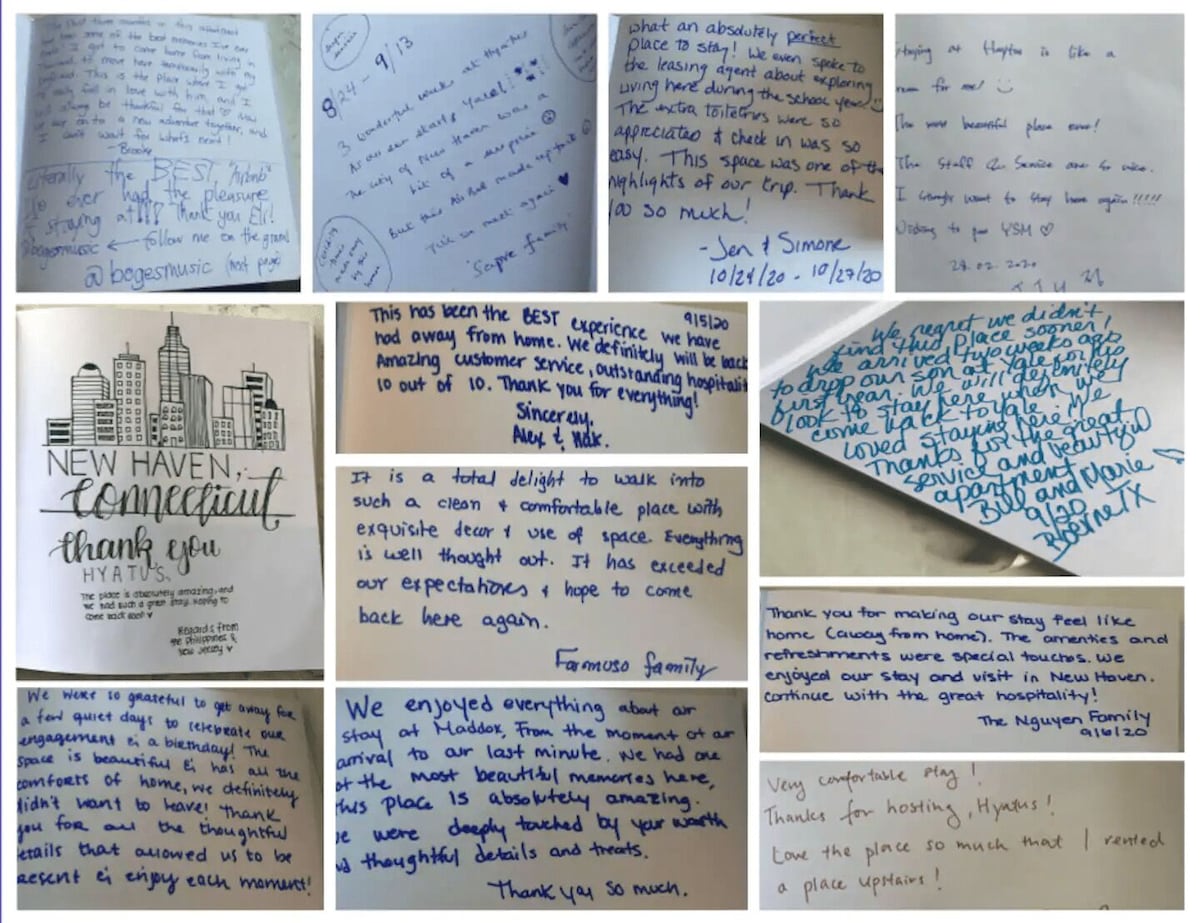 The last three months in this apartment
had been some of the best memories I've ever
made! I got to come home from living in
to move here temporarily with my
This is the place where I got
to each fall in love with him, and I
will always be thankful for that ♡ Now
we are on to a new adventure together, and
I can't wait for what's next!
-Brooke
Literally the BEST "Airbnb"
I've ever had the pleasure
of staying at!!! Thank you Eli!
@bogesmusic ← follow me on the gram
@bogesmusic (next page)
8/24 - 9/13
3 wonderful weeks at Hyatus
As our son starts Yale!
The city of New Haven was a
bit of a surprise ☹
But this Air BnB made up for it ☺
'Till we meet again! ♥
Sapre family
What an absolutely perfect
place to stay! We even spoke to
the leasing agent about exploring
living here during the school year!
The extra toiletries were so
appreciated & check in was so
easy. This space was one of the
highlights of our trip. Thank
you so much!
-Jen & Simone
10/24/20 - 10/27/20
Staying at Hyatus is like a
for me! ☺
The most beautiful place ever!
The Staff & Service are so nice.
I want to stay here again!!!!!
YSM ♡
28.02.2020
NEW HAVEN,
Connecticut
thank you
HYATUS
The place is absolutely amazing, and
we had such a great stay. Hoping to
come back soon! ♥
Regards from
the Philippines &
New Jersey ♥
9/5/20
This has been the BEST experience we have
had away from home. We definitely will be back
Amazing customer service, outstanding hospitalit
10 out of 10. Thank you for everything!
Sincerely,
Alex & Mak.
It is a total delight to walk into
such a clean & comfortable place with
exquisite decor & use of space. Everything
is well thought out. It has exceeded
our expectations & hope to come
back here again.
Farmuso family
We regret we didn't
find this place sooner,
We arrived two weeks ago
to drop our son at Yale for his
first year. We will definitely
look to stay here when we
come back to Yale. We
loved staying here!
Thanks for the great
service and beautiful
apartment
Bill and Marie
9/20
Boerne TX
Thank you for making our stay feel like
home (away from home). The amenties and
refreshments were special touches. We
enjoyed our stay and visit in New Haven.
continue with the great hospitality!
The Nguyen Family
9/6/20
We were so grateful to get away for
a few quiet days to celebrate our
engagement & a birthday! The
space is beautiful & has all the
comforts of home, we definitely
didn't want to leave! Thank
you for all the thoughtful
details that allowed us to be
present & enjoy each moment!
We enjoyed everything about our
stay at Maddox, From the moment of our
arrival to our last minute. We had one
of the most beautiful memories here,
this place is absolutely amazing.
we were deeply touched by your warth
and thoughtful details and treats.
Thank you so much.
Very comfortable stay!
Thanks for hosting, Hyatus!
Love the place so much that I rented
a place upstairs!